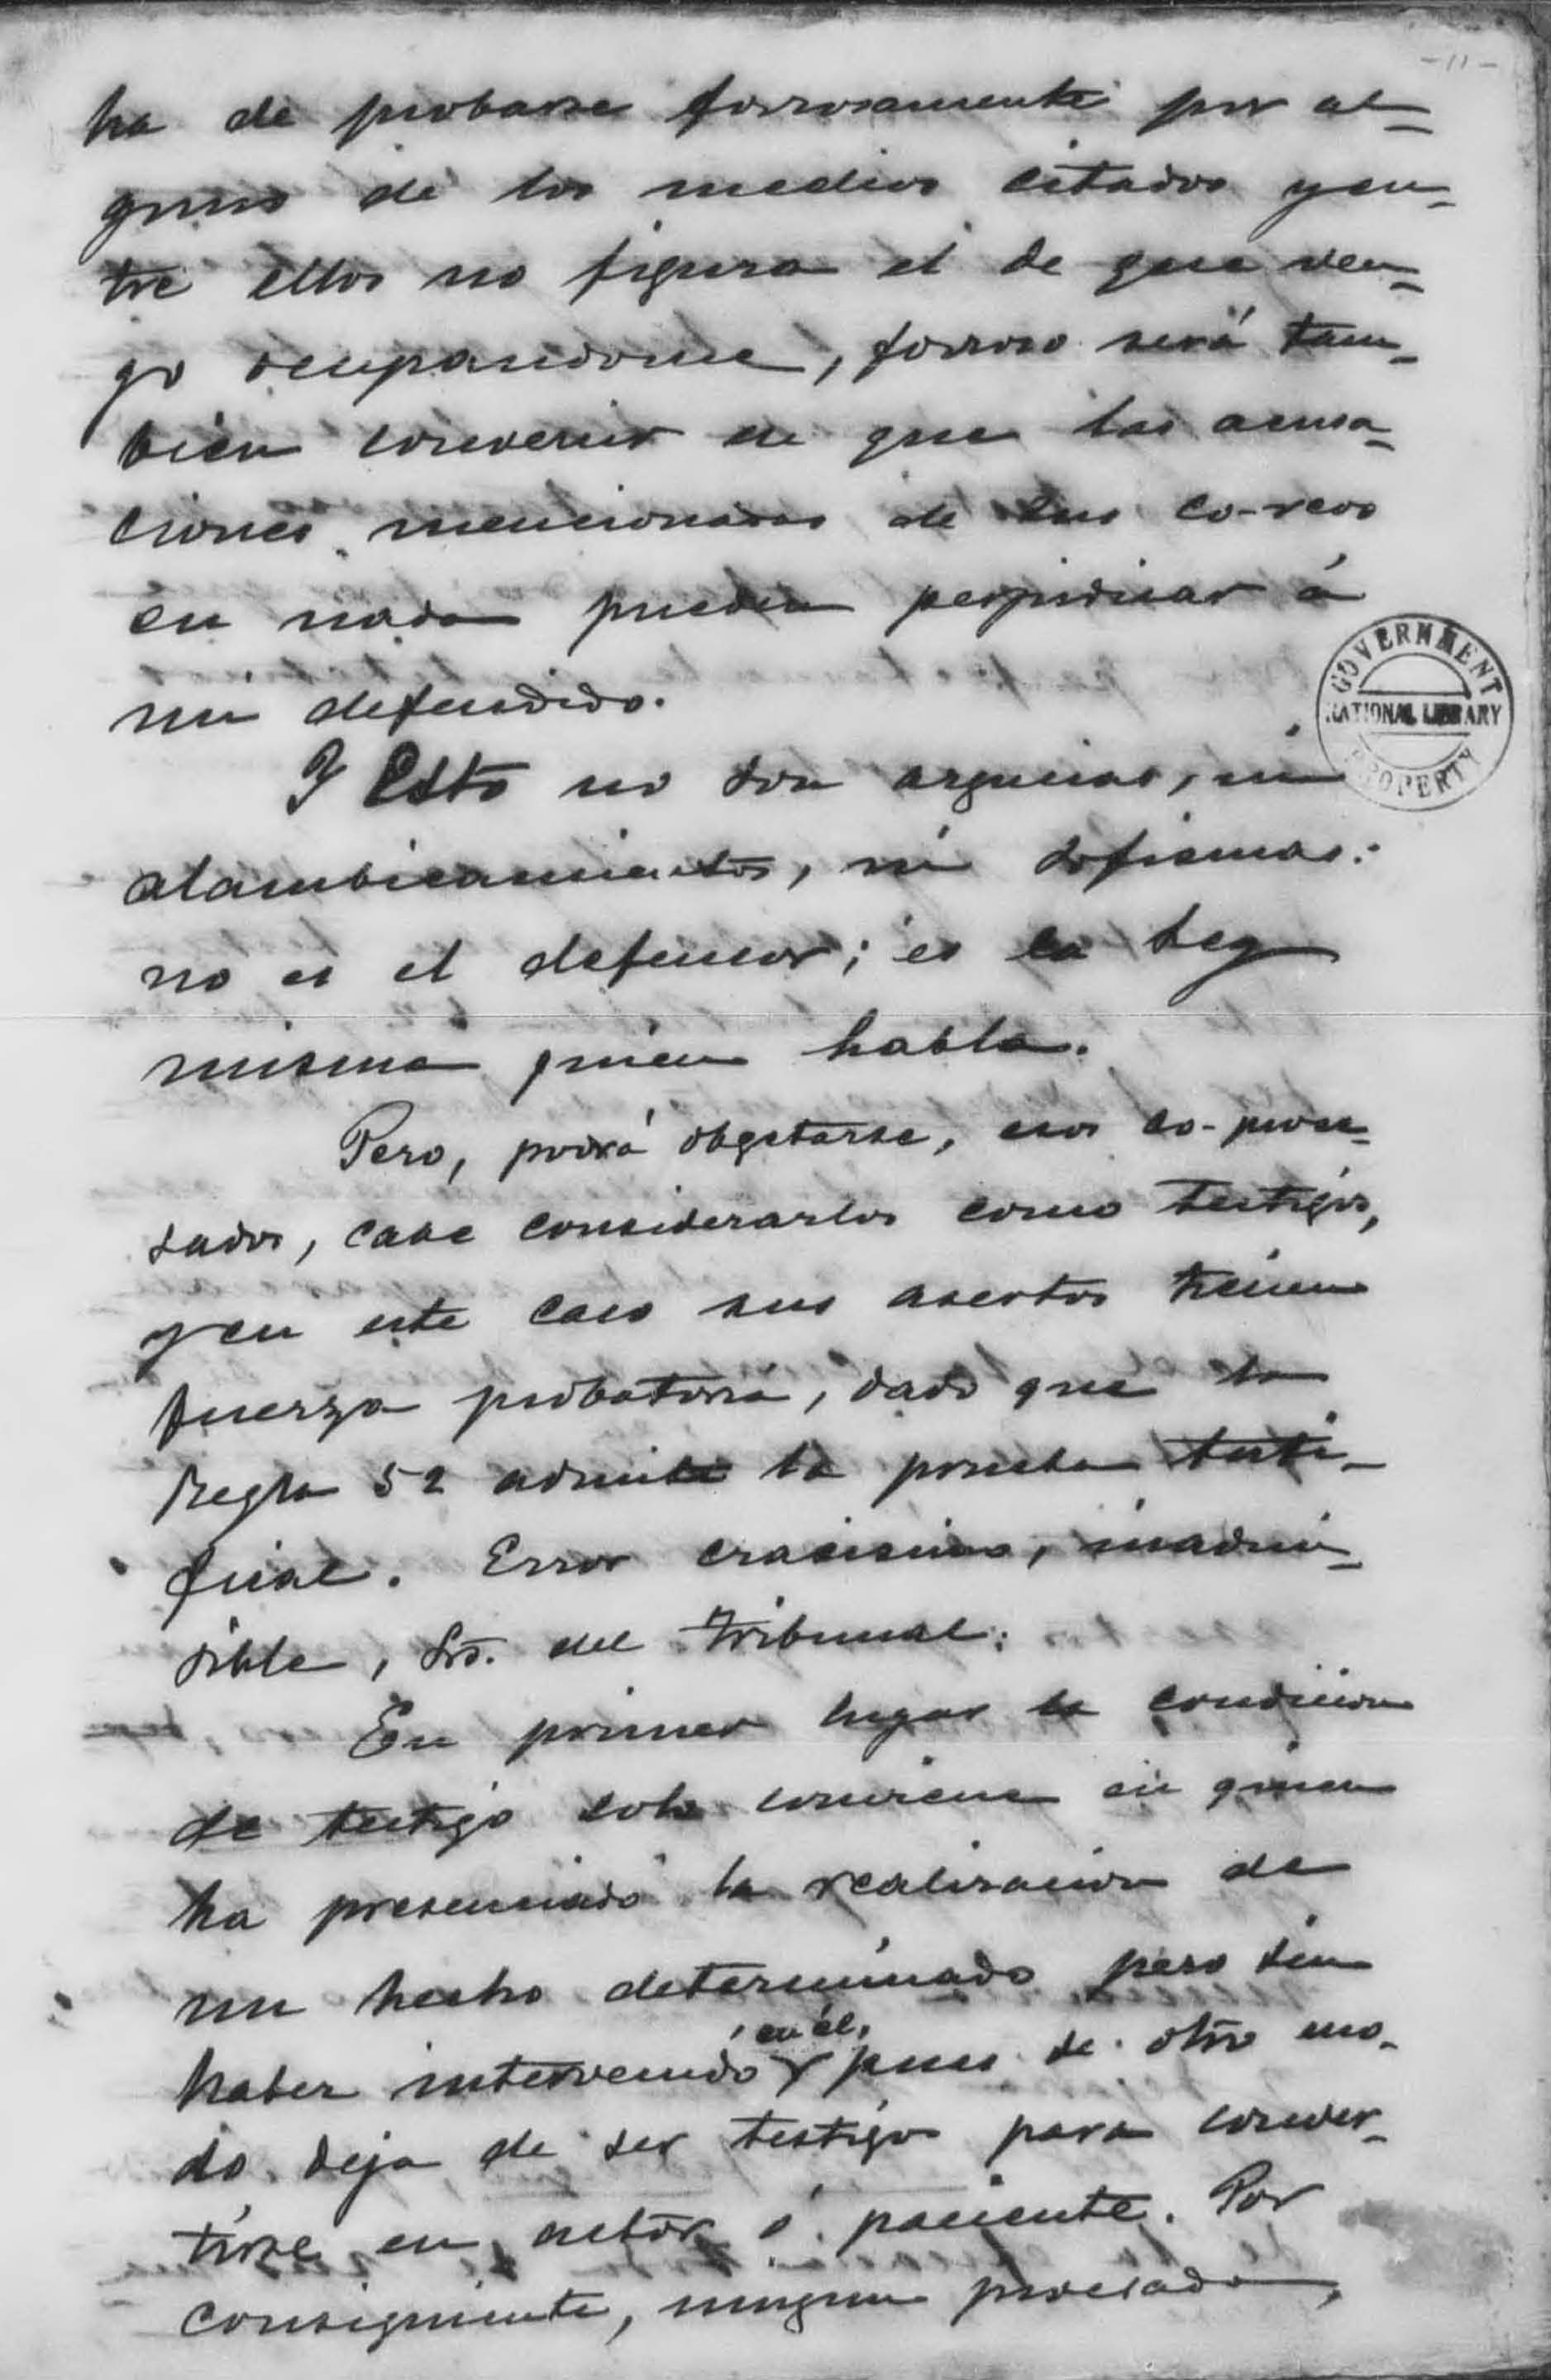 -11-
ha de probarse forzosamente por al=
gunos de los medios citados y en-
tre ellos no figura el de que ven-
go ocupandome, forzoso será tam-
bien convenir en que las acusa-
ciones mencionadas de sus co-reos
en nada pueden perjudicar á
mi defendido.
Y Esto no son argucias, ni
alambicamientos, ni sofismas:
no es el defensor; es la ley
misma quien habla.
Pero, podrá objetarse, esos co-proce-
sados, cabe considerarlos como testigos,
y en este caso sus asertos tienen
fuerza probatoria, dado que la
Regla 52 admite la prueba testi-
fical. Error crasisimo, inadmi-
sible, Srs. del Tribunal:
En primer lugar la condicion
de testigo solo conviene en quien
ha presenciado la realizacion de
un hecho determinado pero sin
haber intervenido en él, pues de otro mo-
do deja de ser testigo para conver-
tirse en actor ó paciente. Por
consiguiente, ningun procesado,
GOVERNMENT
NATIONAL LIBRARY
PROPERTY